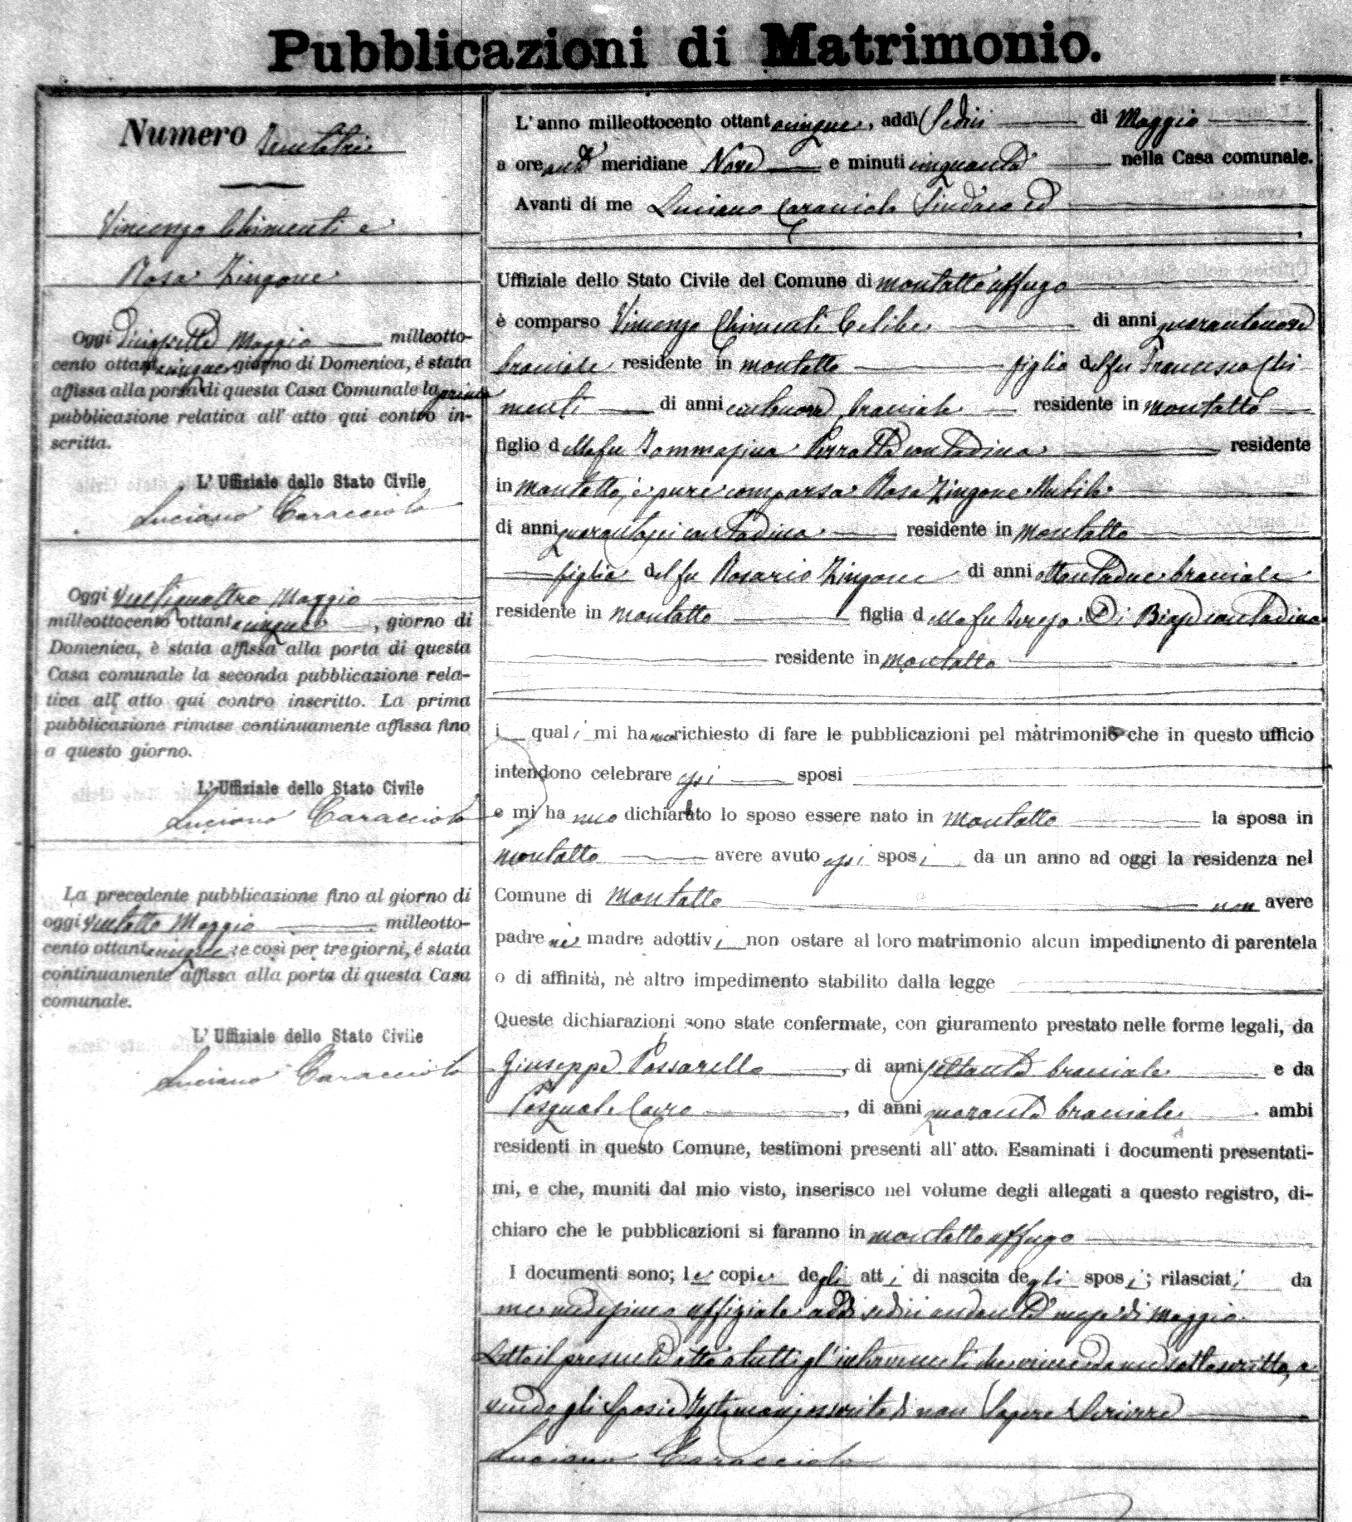 Pubblicazioni di Matrimonio.
Numero Ventitre
Vincenzo Chimenti e
Rosa Zingone
Oggi diciasette Maggio milleotto-
cento ottantacinque giorno di Domenica, è stata
affissa alla porta di questa Casa Comunale la prima
pubblicazione relativa all' atto qui contro in-
scritta.
L' Uffiziale dello Stato Civile
Luciano Caracciolo
Oggi Ventiquattro Maggio
milleottocento ottantacinque, giorno di
Domenica, è stata affissa alla porta di questa
Casa comunale la seconda pubblicazione rela-
tiva all' atto qui contro inscritto. La prima
pubblicazione rimase continuamente affissa fino
a questo giorno.
L' Uffiziale dello Stato Civile
Luciano Caracciolo
La precedente pubblicazione fino al giorno di
oggi Ventotto Maggio milleotto-
cento ottantacinque e così per tre giorni, é stata
continuamente affissa alla porta di questa Casa
comunale.
L' Uffiziale dello Stato Civile
Luciano Caracciolo
L' anno milleottocento ottantacinque, addì Sedici di Maggio
a ore anti meridiane Nove e minuti cinquanta nella Casa comunale.
Avanti di me Luciano Caracciolo Sindaco ed
Uffiziale dello Stato Civile del Comune di Montalto uffugo
è comparso Vincenzo Chimenti Celibe di anni quarantanove
bracciale residente in Montalto figlio del fu Francesco Chi
menti di anni bracciale residente in Montalto
figlio della fu Tommasina Perrotta contadina residente
in Montalto, è pure comparsa Rosa Zingone Nubile
di anni quarantasei contadina residente in Montalto
figlia del fu Rosario Zingone di anni ottantadue bracciale
residente in Montalto figlia della fu Teresa Di Biase contadina
residente in Montalto
i quali mi hanno richiesto di fare le pubblicazioni pel matrimonio che in questo ufficio
intendono celebrare essi sposi
e mi hanno dichiarato lo sposo essere nato in Montalto la sposa in
Montalto avere avuto essi sposi da un anno ad oggi la residenza nel
Comune di Montalto non avere
padre nè madre adottivi non ostare al loro matrimonio alcun impedimento di parentela
o di affinità, nè altro impedimento stabilito dalla legge
Queste dichiarazioni sono state confermate, con giuramento prestato nelle forme legali, da
Giuseppe Passarello, di anni settanta bracciale e da
Pasquale Cairo, di anni quaranta bracciale ambi
residenti in questo Comune, testimoni presenti all' atto. Esaminati i documenti presentati-
mi, e che, muniti dal mio visto, inserisco nel volume degli allegati a questo registro, di-
chiaro che le pubblicazioni si faranno in Montalto uffugo
I documenti sono; le copie degli atti di nascita degli sposi; rilasciati da
me medesimo uffiziale addì sedici andante mese di Maggio
Letto il presente atto a tutti gl' intervenuti che viene da me sottoscritto, a
vendo gli Sposi e Testimonj asserito di non Sapere Scrivere
Luciano Caracciolo